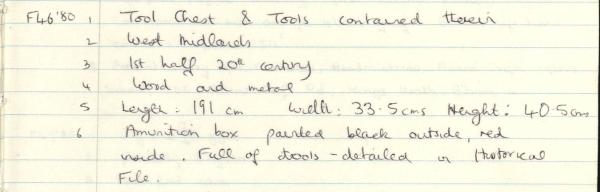 F46'80 1 Tool Chest & Tools contained therein
2 West Midlands
3 1st half 20th century
4 Wood and metal
5 Length: 191 cm Width: 33.5cms Height: 40.5cms
6 Amunition box painted black outside, red
inside. Full of tools - detailed in Historical
File.